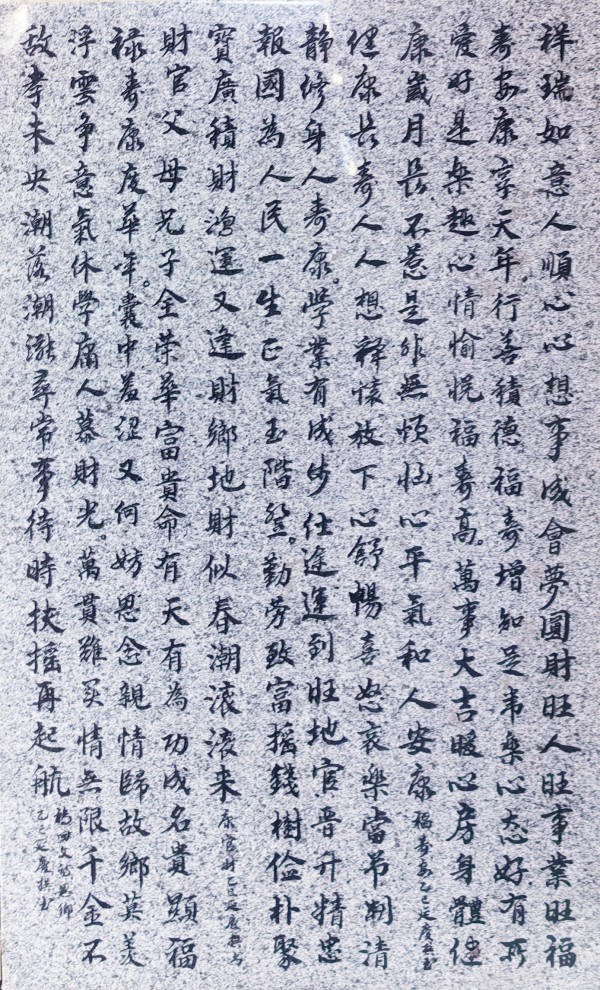 祥瑞如意人順心心想事成會夢圓財旺人旺事業旺福
壽安康享天年。行善積德福壽增知足常樂心态好有所
愛好是樂趣心情愉悦福壽高。萬事大吉暖心房身體健
康歲月長不惹是非無煩惱心平氣和人安康福壽安乙巳延慶撰書
健康長壽人人想釋懷放下心舒暢喜怒哀樂當节制清
静修身人壽康。學業有成步仕途運到旺地官晋升精忠
報國為人民一生正氣玉階登。勤劳致富摇錢樹儉朴聚
寶廣積財鴻運又逢財鄉地財似春潮滚滚来康官財乙巳延慶撰书
財官父母兄子全荣華富貴命有天有為功成名貴顯福
禄壽康度華年。囊中羞涩又何妨思念親情歸故鄉莫羡
浮雲争意氣休學庸人慕財光。萬貫難买情無限千金不
敌孝未央潮落潮漲尋常事待時扶摇再起航
乙巳延慶撰书